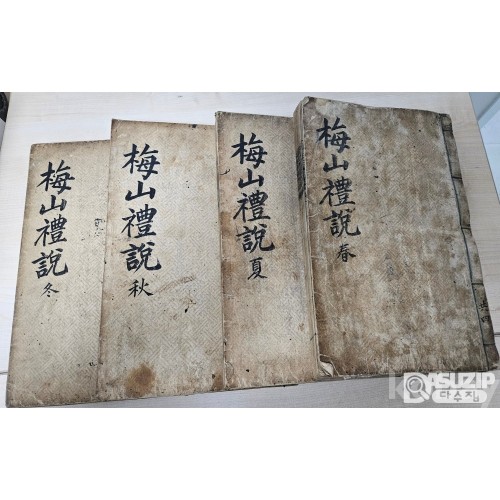 梅山禮說 春
梅山禮說 夏
梅山禮說 秋
梅山禮說 冬
DASUZIP
다수집